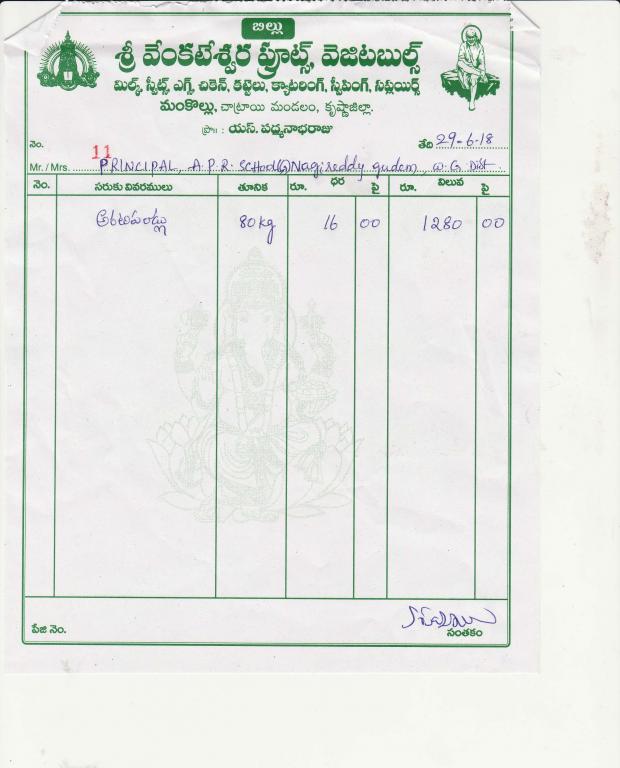 బిల్లు
శ్రీ వేంకటేశ్వర ఫ్రూట్స్, వెజిటబుల్స్
మిల్క్, స్వీట్స్, ఎగ్స్, చికెన్, కట్టెలు, క్యాటరింగ్, స్వీపింగ్, సప్లయర్స్
మంకొల్లు, చాట్రాయి మండలం, కృష్ణాజిల్లా.
ప్రొ॥ : యస్. పద్మనాభరాజు
నెం. 11 తేది 29-6-18
Mr. / Mrs. PRINCIPAL, A.P.R. SCHOOL(G) Nagireddy gudem, W.G Dist.
నెం. సరుకు వివరములు తూనిక రూ. ధర పై రూ. విలువ పై
అరటిపండ్లు 80 kg 16 00 1280 00
పేజి నెం. సంతకం